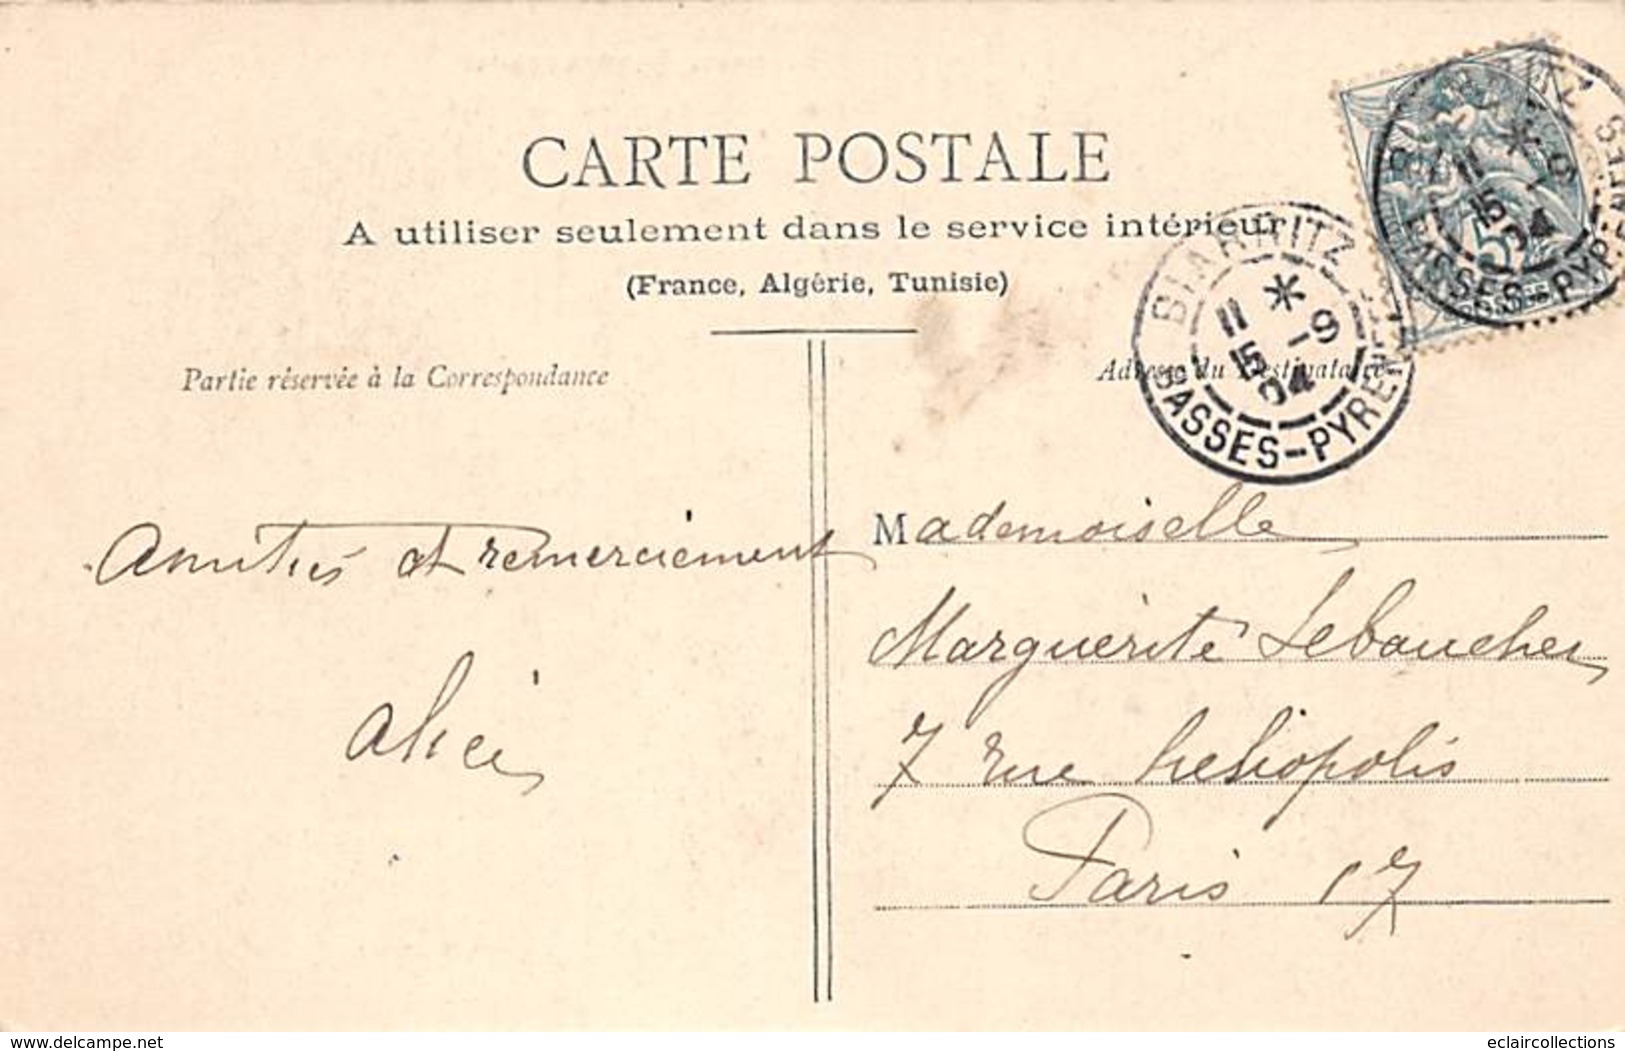 CARTE POSTALE
A utiliser seulement dans le service intérieur
(France, Algérie, Tunisie)
Partie réservée à la Correspondance
Adresse du Destinataire
BIARRITZ
11 * 5 -9 04
BASSES-PYRENEES
BIARRITZ
11 * 5 -9 04
BASSES-PYRENEES
5
Amitiés et remerciement
Alice
Mademoiselle
Marguerite Lebaucher
7 rue heliopolis
Paris 17
www.delcampe.net
eclaircollections